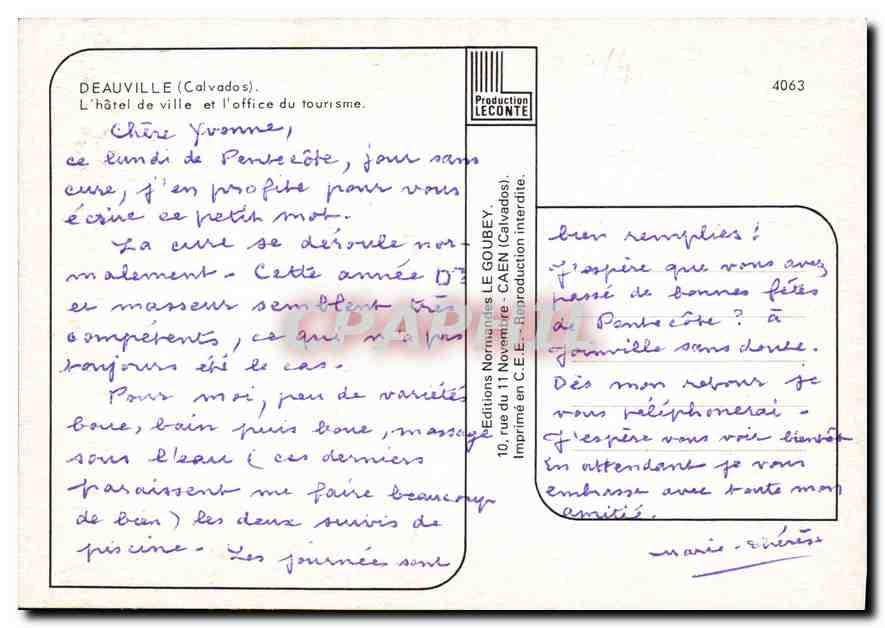 DEAUVILLE (Calvados).
L'hôtel de ville et l'office du tourisme.
Chère Yvonne,
ce lundi de Pentecôte, jour sans
cure, j'en profite pour vous
écrire ce petit mot.
La cure se déroule nor-
malement. Cette année Dr
et masseur semblent très
compétents, ce qui n'a pas
toujours été le cas.
Pour moi, peu de variétés
boue, bain puis boue, massage
sous l'eau (ces derniers
paraissent me faire beaucoup
de bien) les deux suivis de
piscine. Les journées sont
Production
LECONTE
Editions Normandes LE GOUBEY.
10, rue du 11 Novembre - CAEN (Calvados).
Imprimé en C.E.E. - Reproduction interdite.
4063
bien remplies!
J'espère que vous avez
passé de bonnes fêtes
de Pentecôte? à
Joinville sans doute.
Dès mon retour je
vous téléphonerai.
J'espère vous voir bientôt
En attendant je vous
embrasse avec toute mon
amitié.
Marie-Thérèse
CPAPHIL